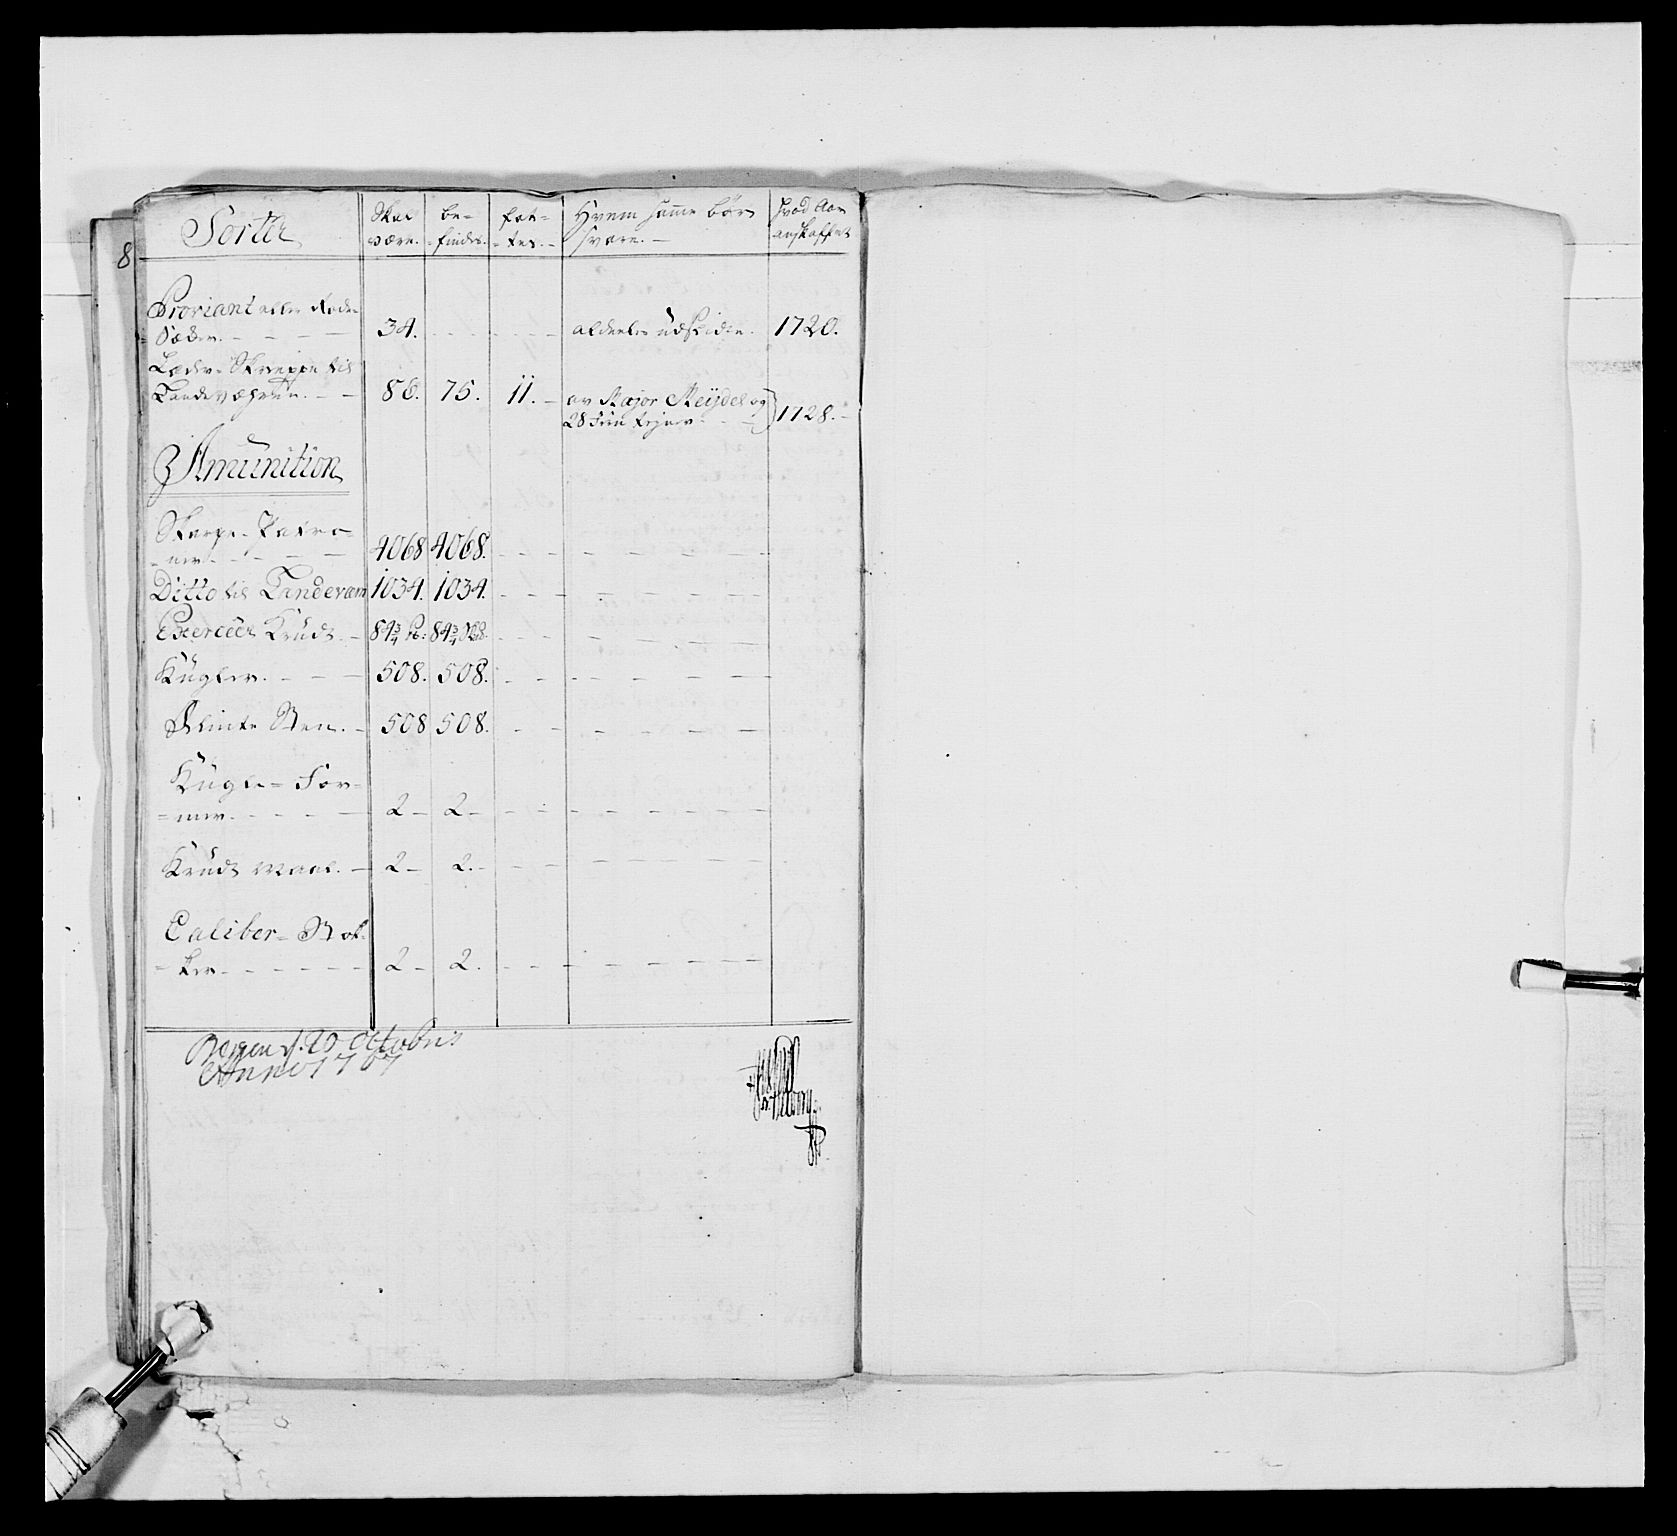 8
Sorter
Skal være.
be-
findes.
fat-
tes.
Hvem samme bør
svare.
hvad Aar
anskaffet
Proviant eller Rode
Sæder. 34. alderlis udslidte. 1720.
Læder-Skreppe til
Landeværnet. 86. 75. 11. av Major Meijdel og
28 1728.
Amunition
Skarpe-Patro-
ner. 4068 4068.
Ditto til Landeværn 1034. 1034.
Exerceer Krudt. 84 3/4 84 3/4
Kugler. 508. 508.
Flinte Steen. 508 508.
Kugle-For-
mer. 2 2
Krudt Maal. 2 2.
Caliber-Stok-
ker 2 2.
Bergen d. 20 Octobris
Anno 1767